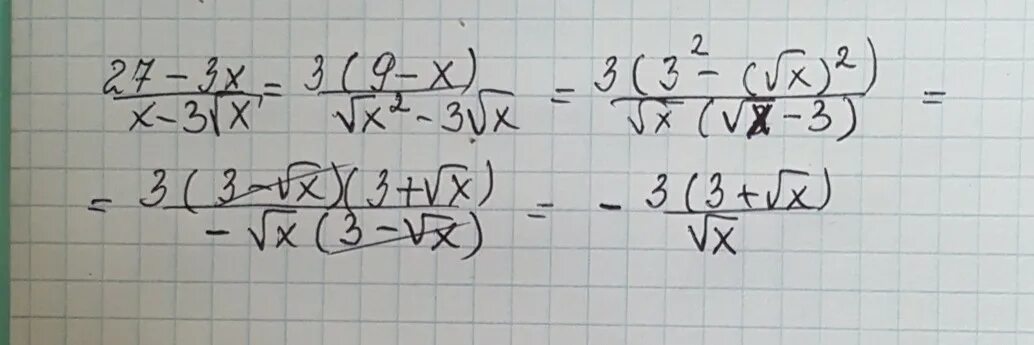 (27 - 3x)/(x - 3√x) = 3(9 - x)/(√x² - 3√x) = 3(3² - (√x)²)/(√x (√x - 3)) =
= 3(3 - √x)(3 + √x)/(-√x (3 - √x)) = - 3(3 + √x)/√x